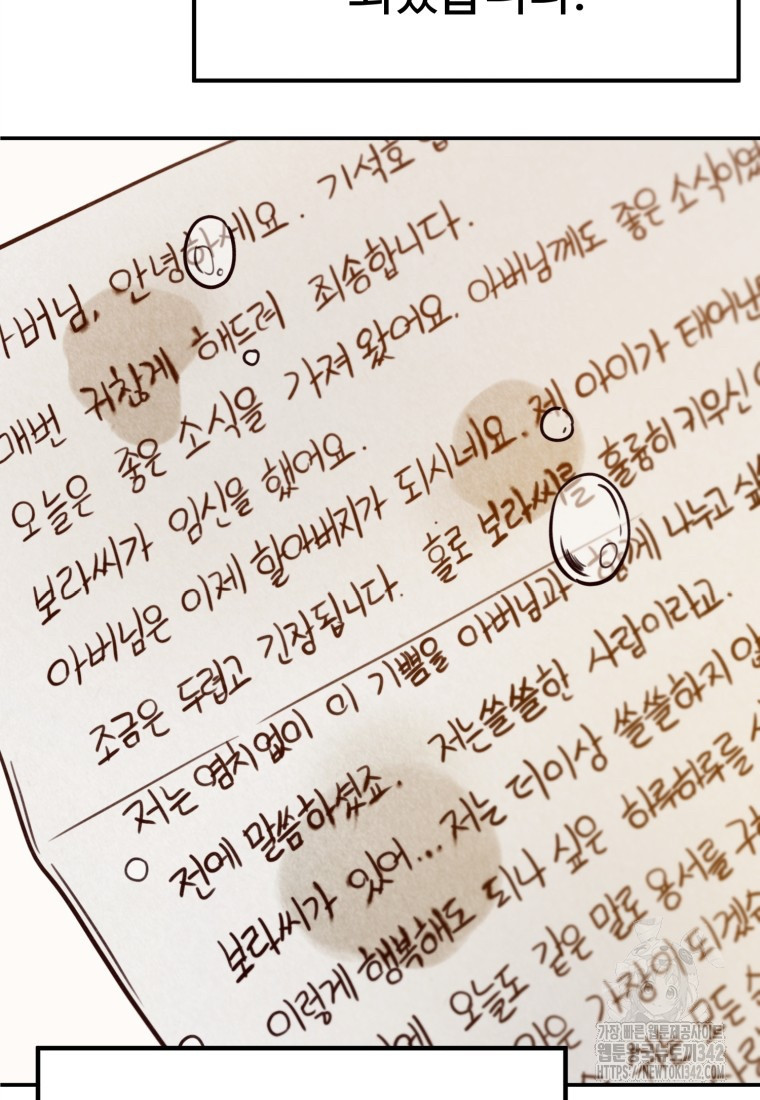 되었습니다.
아버님, 안녕하세요. 기석호
매번 귀찮게 해드려 죄송합니다.
오늘은 좋은 소식을 가져 왔어요. 아버님께도 좋은 소식이었
보라씨가 임신을 했어요.
아버님은 이제 할아버지가 되시네요. 제 아이가 태어난
조금은 두렵고 긴장됩니다. 홀로 보라씨를 훌륭히 키우신
저는 염치없이 이 기쁨을 아버님과 함께 나누고 싶
전에 말씀하셨죠. 저는 쓸쓸한 사람이라고.
보라씨가 있어... 저는 더이상 쓸쓸하지 않
이렇게 행복해도 되나 싶은 하루하루를
오늘도 같은 말로 용서를 구하
가장이 되겠습
모든
사랑
가장 빠른 웹툰제공사이트
웹툰왕국뉴토끼342
HTTPS://NEWTOKI342.COM